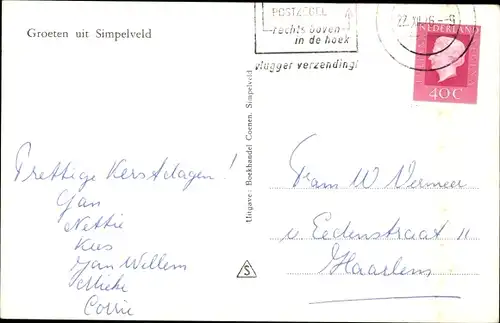 Groeten uit Simpelveld
POSTZEGEL
rechts boven
in de hoek
vlugger verzending!
22.XII.75-
NEDERLAND
40C
Prettige Kerstdagen!
Jan
Nettie
Kees
Jan Willem
Mieke
Corrie
Uitgave: Boekhandel Coenen, Simpelveld
S
Fam W Vermeer
v Eedenstraat 11
Haarlem